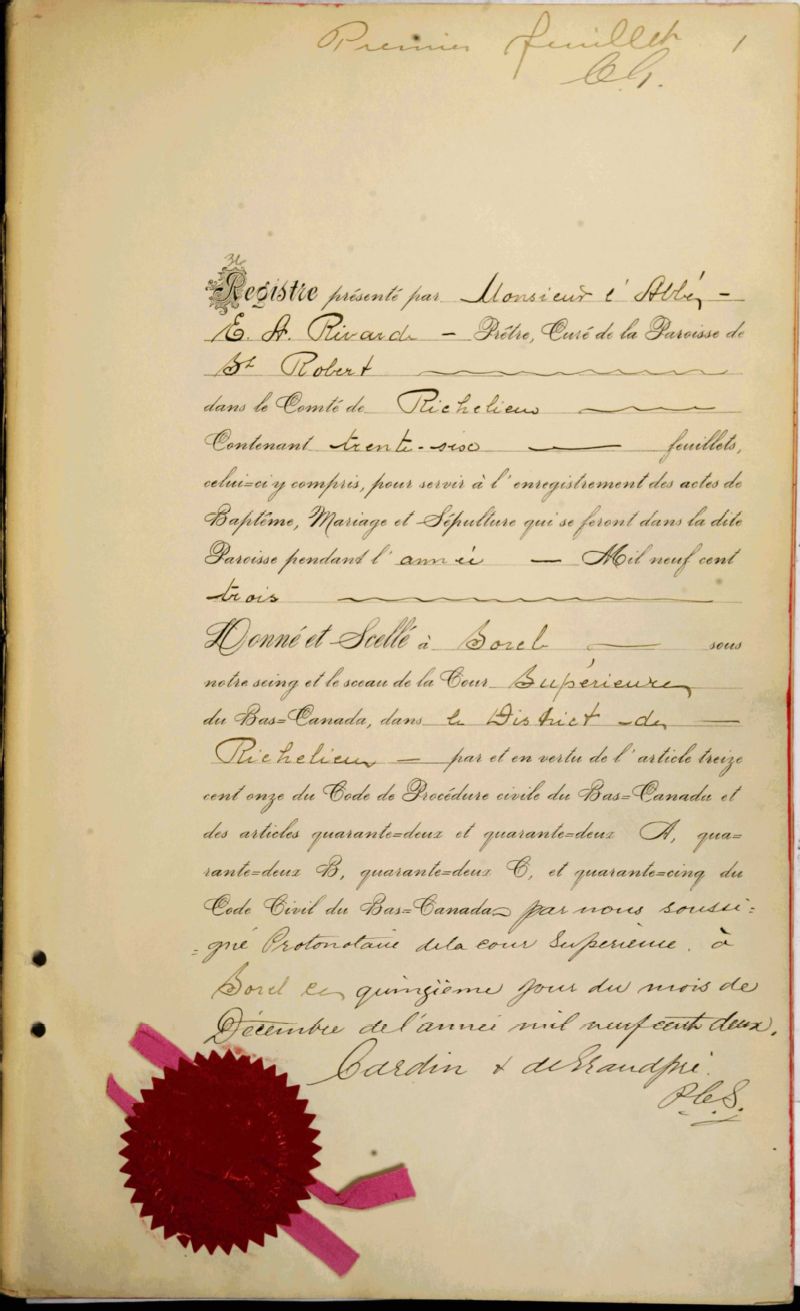 Premier feuillet 1
C. G.
36
Registre présenté par Monsieur l'Abbé
E. A. Rivard — Prêtre, Curé de la Paroisse de
St Robert
dans le Comté de Richelieu
Contenant trente-six — feuillets,
celui=ci y compris, pour servir à l'enregistrement des actes de
Baptême, Mariage et Sépulture qui se feront dans la dite
Paroisse pendant l'année — Mil neuf cent
trois
Donné et Scellé à Sorel — sous
notre seing et le sceau de la Cour Supérieure
du Bas=Canada, dans le District de —
Richelieu — par et en vertu de l'article treize
cent onze du Code de Procédure civile du Bas=Canada et
des articles quarante=deux et quarante=deux A, qua=
rante=deux B, quarante=deux C, et quarante=cinq du
Code Civil du Bas=Canada par nous soussi=
=gné Protonotaire de la cour Supérieure à
Sorel ce quinzième jour du mois de
Décembre de l'année mil neuf cent deux.
Cardin & de Grandpré
P.C.S.